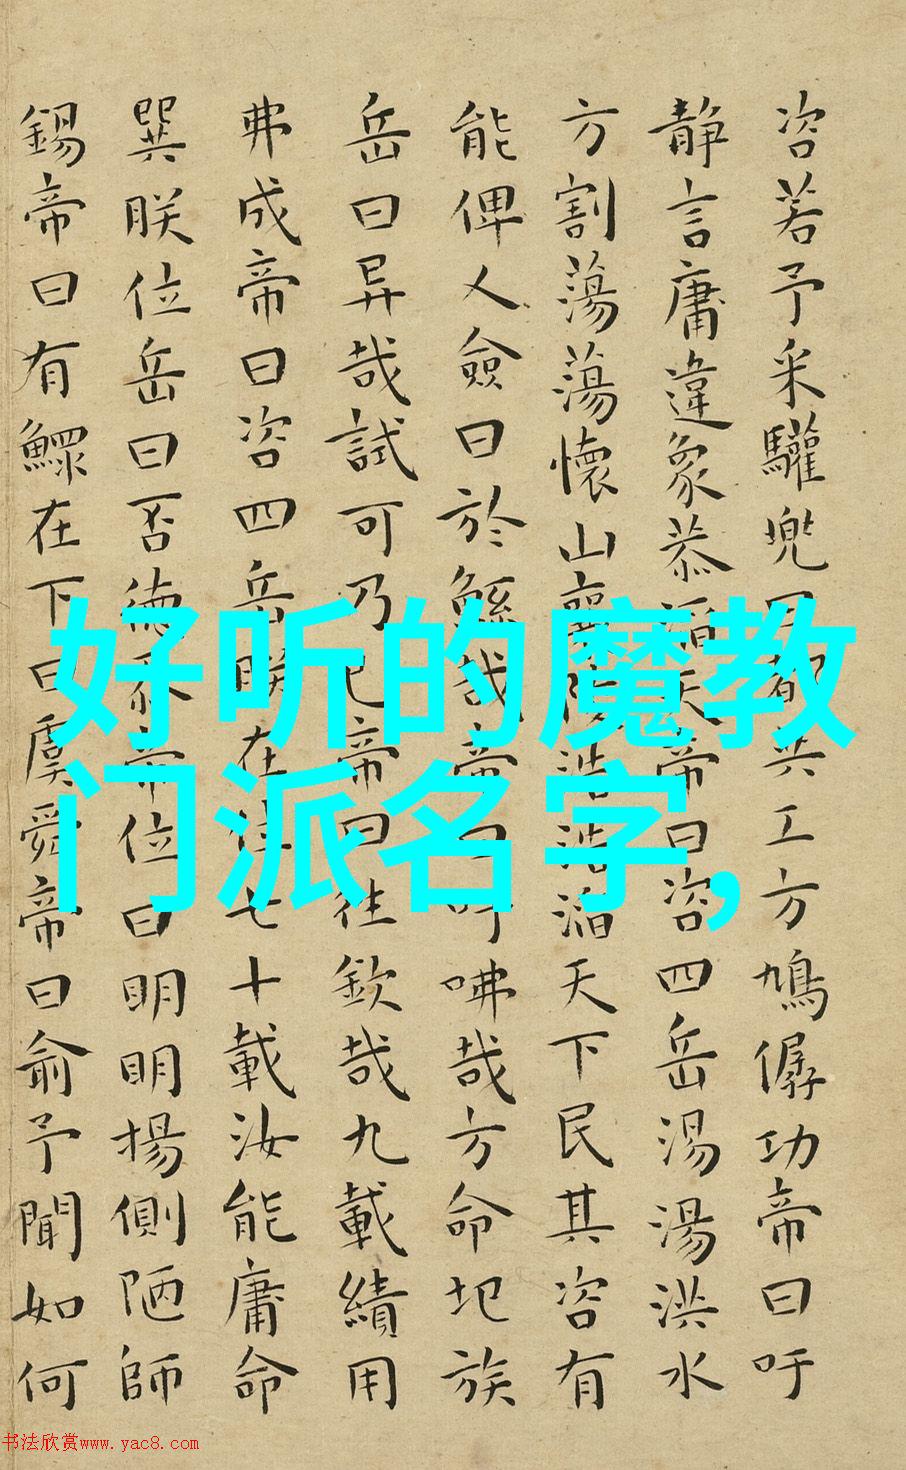 咨若予采驩兜曰都共工方鳩僝功帝曰吁
静言庸違象恭滔天帝曰咨四岳湯湯洪水
方割蕩蕩懷山襄陵浩浩滔天下民其咨有
能俾乂僉曰於鯀哉帝曰吁咈哉方命圮族
岳曰异哉試可乃已帝曰往欽哉九載績用
弗成帝曰咨四岳朕在位七十載汝能庸命
巽朕位岳曰否德忝帝位曰明明揚側陋師
錫帝曰有鰥在下曰虞舜帝曰俞予聞如何
好听的魔教
门派名字,
书法欣赏www.yac8.com